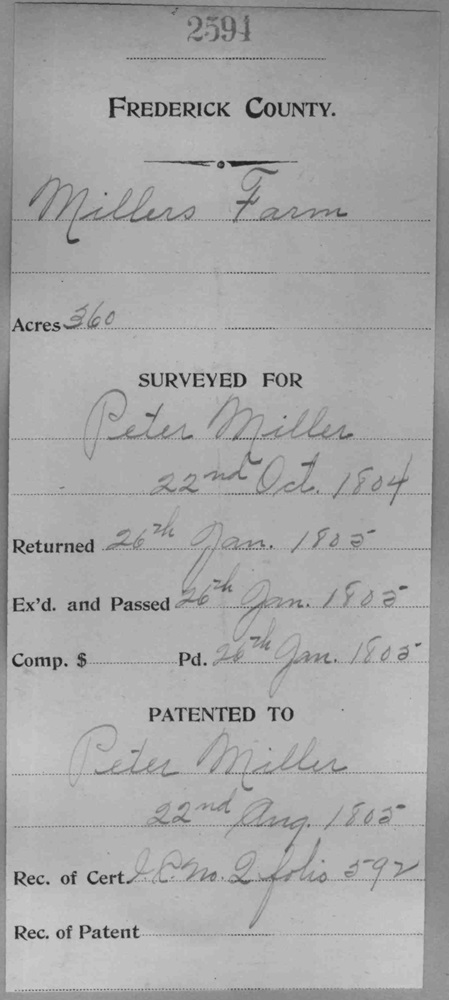 2591
FREDERICK COUNTY.
Millers Farm
Acres 360
SURVEYED FOR
Peter Miller
22nd Oct. 1804
Returned 26th Jan. 1805
Ex'd. and Passed 26th Jan. 1805
Comp. $ Pd. 26th Jan. 1805
PATENTED TO
Peter Miller
22nd Aug. 1805
Rec. of Cert. I.C. No. Q folio 592
Rec. of Patent